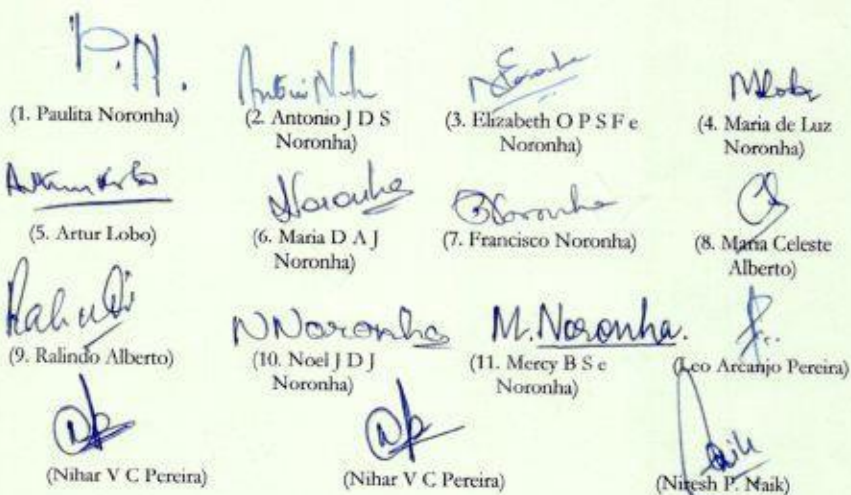 P.N.
(1. Paulita Noronha)
(2. Antonio J D S
Noronha)
(3. Elizabeth O P S F e
Noronha)
(4. Maria de Luz
Noronha)
(5. Artur Lobo)
Noronha
(6. Maria D A J
Noronha)
Noronha
(7. Francisco Noronha)
(8. Maria Celeste
Alberto)
(9. Ralindo Alberto)
NNoronha
(10. Noel J D J
Noronha)
M. Noronha.
(11. Mercy B S e
Noronha)
(Leo Arcanjo Pereira)
(Nihar V C Pereira)
(Nihar V C Pereira)
Naik
(Nitesh P. Naik)